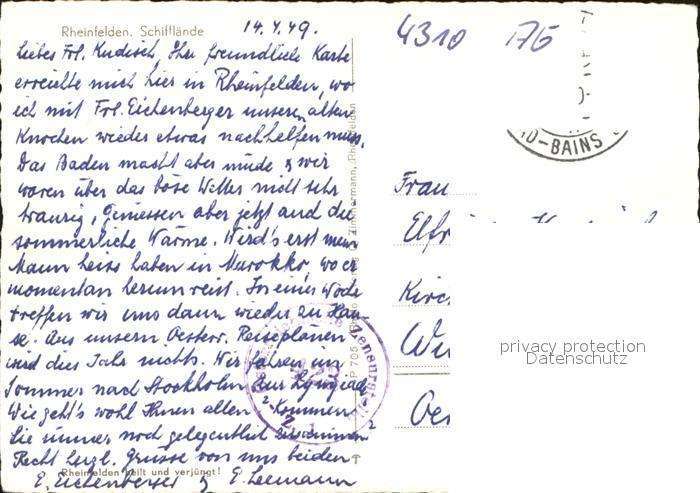 Rheinfelden. Schifflände
14.4.49.
4310 176
Liebes Frl. Kudisch, Ihre freundliche Karte
erreichte mich hier in Rheinfelden, wo
ich mit Frl. Eichenberger unseren alten
Knochen wieder etwas nachhelfen muss.
Das Baden macht aber müde & wir
waren über das böse Wetter nicht sehr
traurig, geniessen aber jetzt auch die
sommerliche Wärme. Wird's erst mein
Mann heiss haben in Marokko, wo er
momentan herumreist. In einer Woche
treffen wir uns dann wieder zu Hau-
se. Aus unsern Oesterr. Reiseplänen
wird dies Jahr nichts. Wir fahren im
Sommer nach Stockholm zur Lyngiade
Wie geht's wohl Ihnen allen? Kommen
Sie immer noch gelegentlich zusammen?
Recht herzl. Grüsse von uns beiden
E. Eichenberger & E. Leemann
Rheinfelden heilt und verjüngt!
Zimmermann, Rheinfelden
P 705
O-BAINS
Frau
Elfr
Kirc
privacy protection
Datenschutz